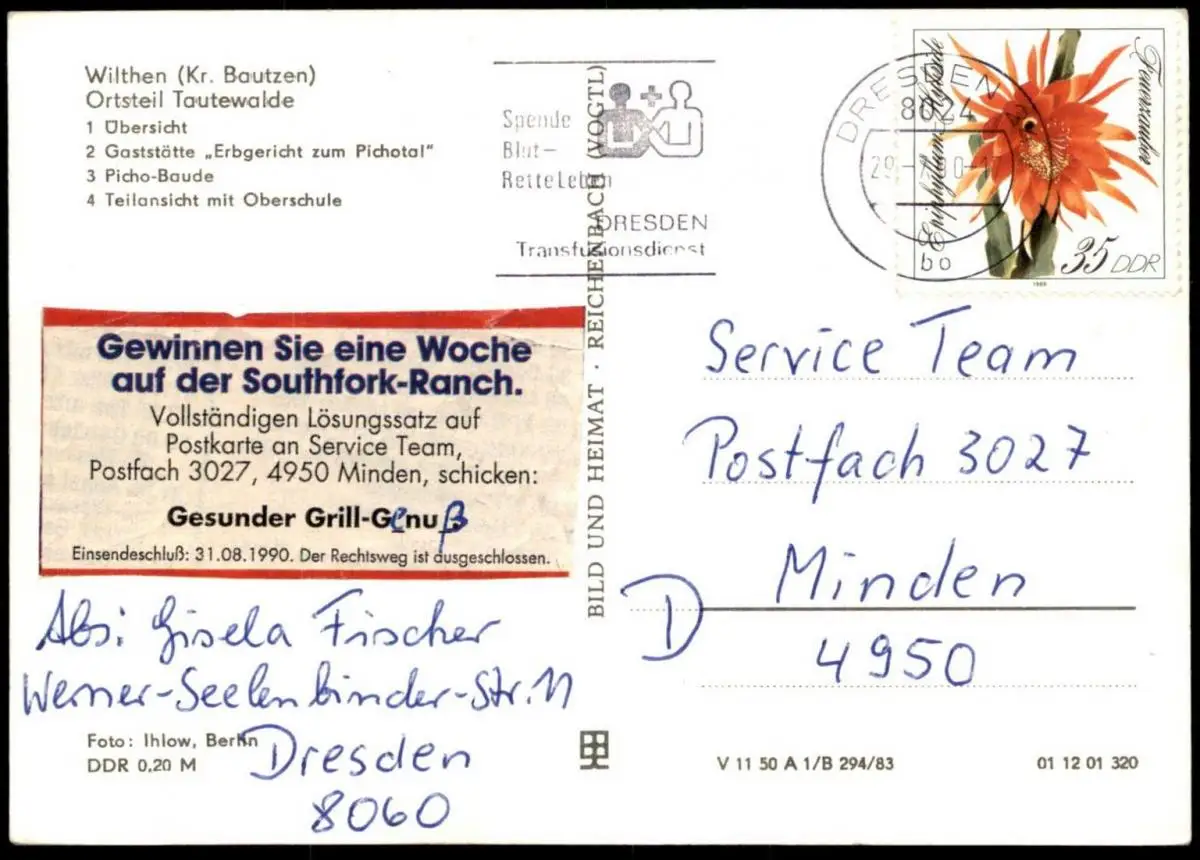 Wilthen (Kr. Bautzen)
Ortsteil Tautewalde
1 Übersicht
2 Gaststätte „Erbgericht zum Pichotal“
3 Picho-Baude
4 Teilansicht mit Oberschule
Spende
Blut-
Rette Leben
DRESDEN
Transfusionsdienst
DRESDEN
8024
bo
Epiphyllum-Hybride
Feuerzauber
35 DDR
1989
Gewinnen Sie eine Woche
auf der Southfork-Ranch.
Vollständigen Lösungssatz auf
Postkarte an Service Team,
Postfach 3027, 4950 Minden, schicken:
Gesunder Grill-Genuß
Einsendeschluß: 31.08.1990. Der Rechtsweg ist ausgeschlossen.
Abs: Gisela Fischer
Werner-Seelenbinder-Str. 11
Dresden
8060
Foto: Ihlow, Berlin
DDR 0,20 M
BILD UND HEIMAT · REICHENBACH (VOGTL)
Service Team
Postfach 3027
Minden
D
4950
V 11 50 A 1/B 294/83
01 12 01 320